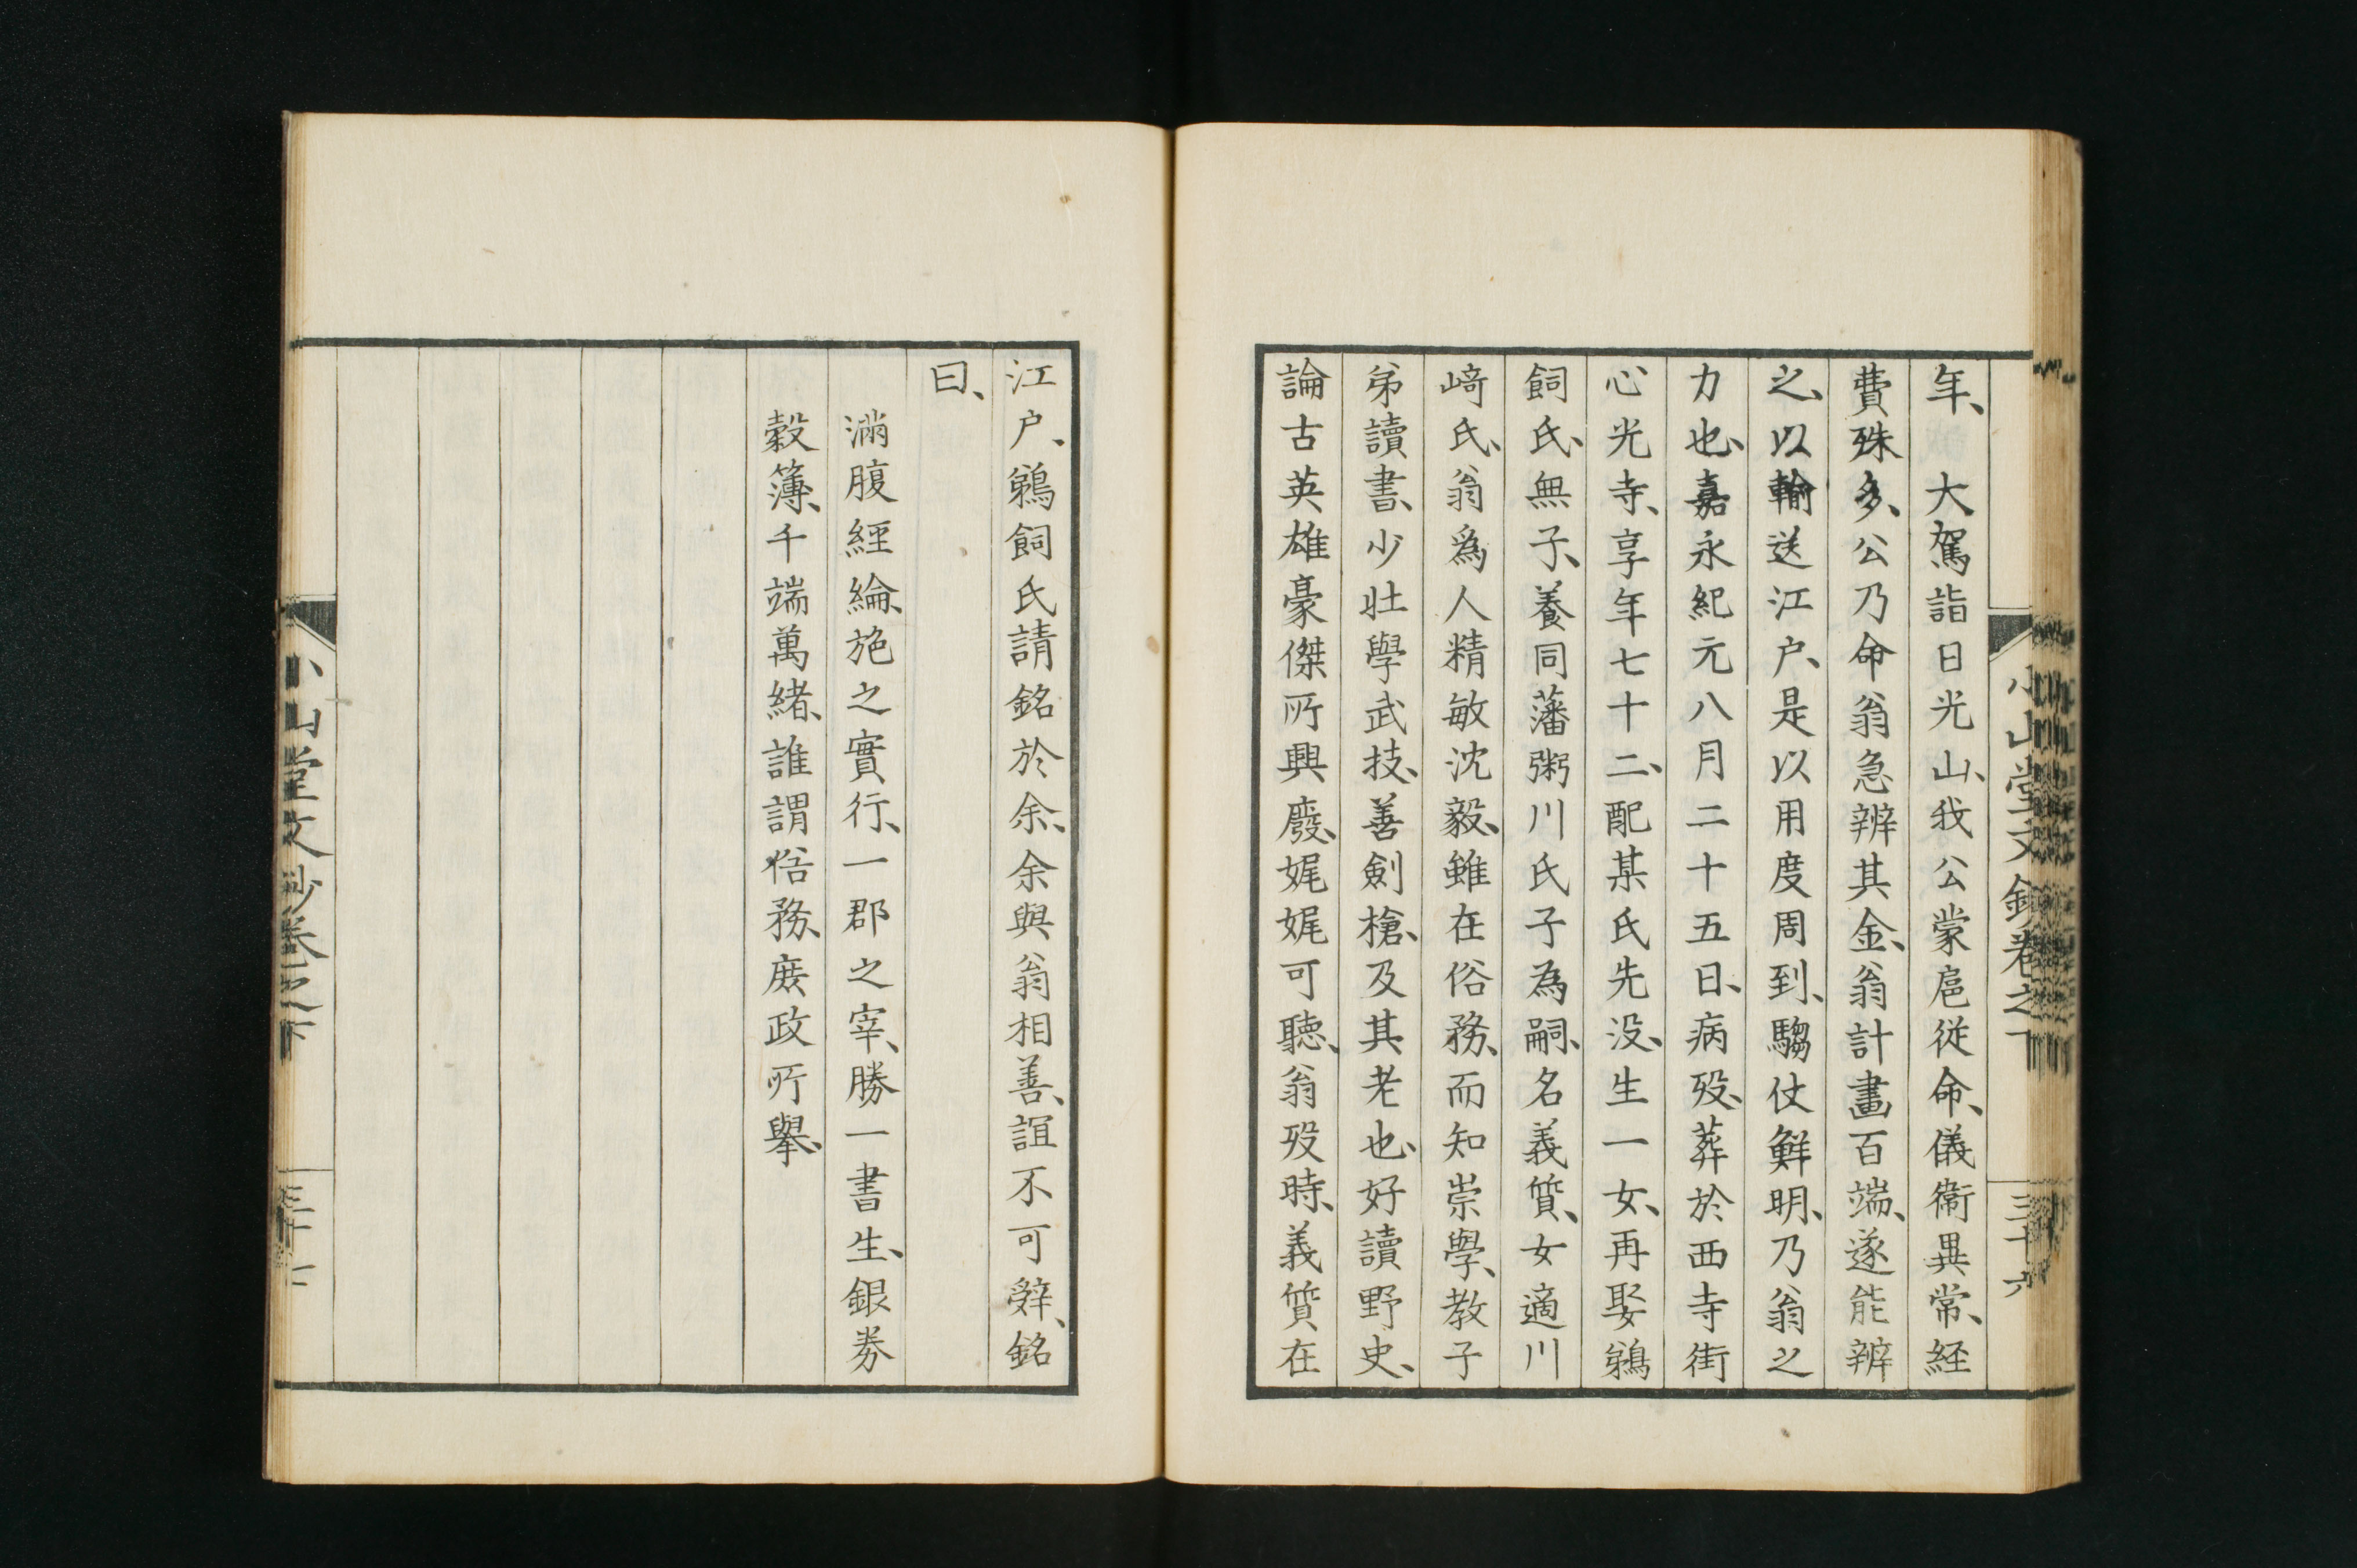 小山堂文鈔卷之下 三十六
年、　大駕詣日光山、我公蒙扈從命、儀衞異常、経
費殊多、公乃命翁急辨其金、翁計畫百端、遂能辨
之、以輸送江户、是以用度周到、騶仗鮮明、乃翁之
力也、嘉永紀元八月二十五日、病歿、葬於西寺街
心光寺、享年七十二、配某氏先没、生一女、再娶鵜
飼氏、無子、養同藩粥川氏子為嗣、名義質、女適川
﨑氏、翁爲人精敏沈毅、雖在俗務、而知崇學、教子
弟讀書、少壯學武技、善劍槍、及其老也、好讀野史、
論古英雄豪傑所興廢、娓娓可聽、翁歿時、義質在
江户、鵜飼氏請銘於余、余與翁相善、誼不可辭、銘
曰、
満腹經綸、施之實行、一郡之宰、勝一書生、銀券
穀簿、千端萬緒、誰謂俗務、庶政所擧、
小山堂文鈔卷之下